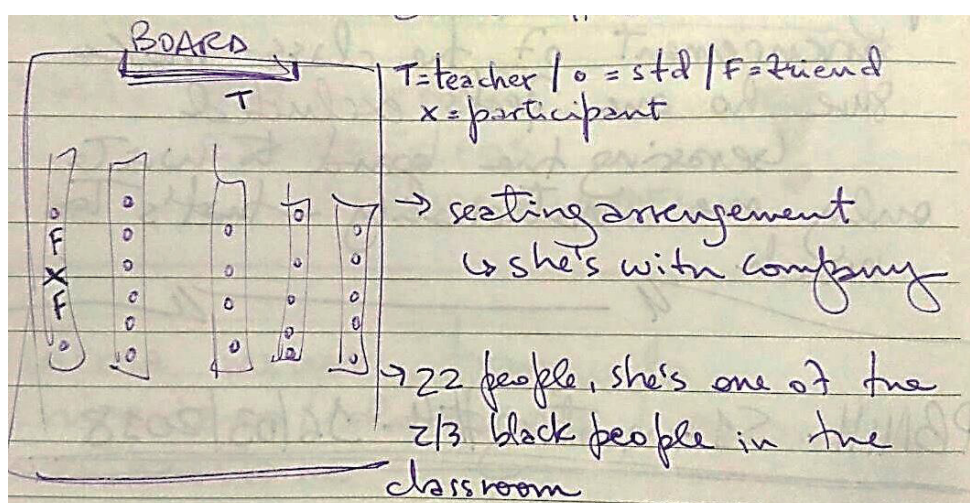 BOARD
T
T=teacher / o = std / F = friend
x = participant
→ seating arrengement
↳ she's with company
F
X
F
→ 22 people, she's one of the
2/3 black people in the
classroom